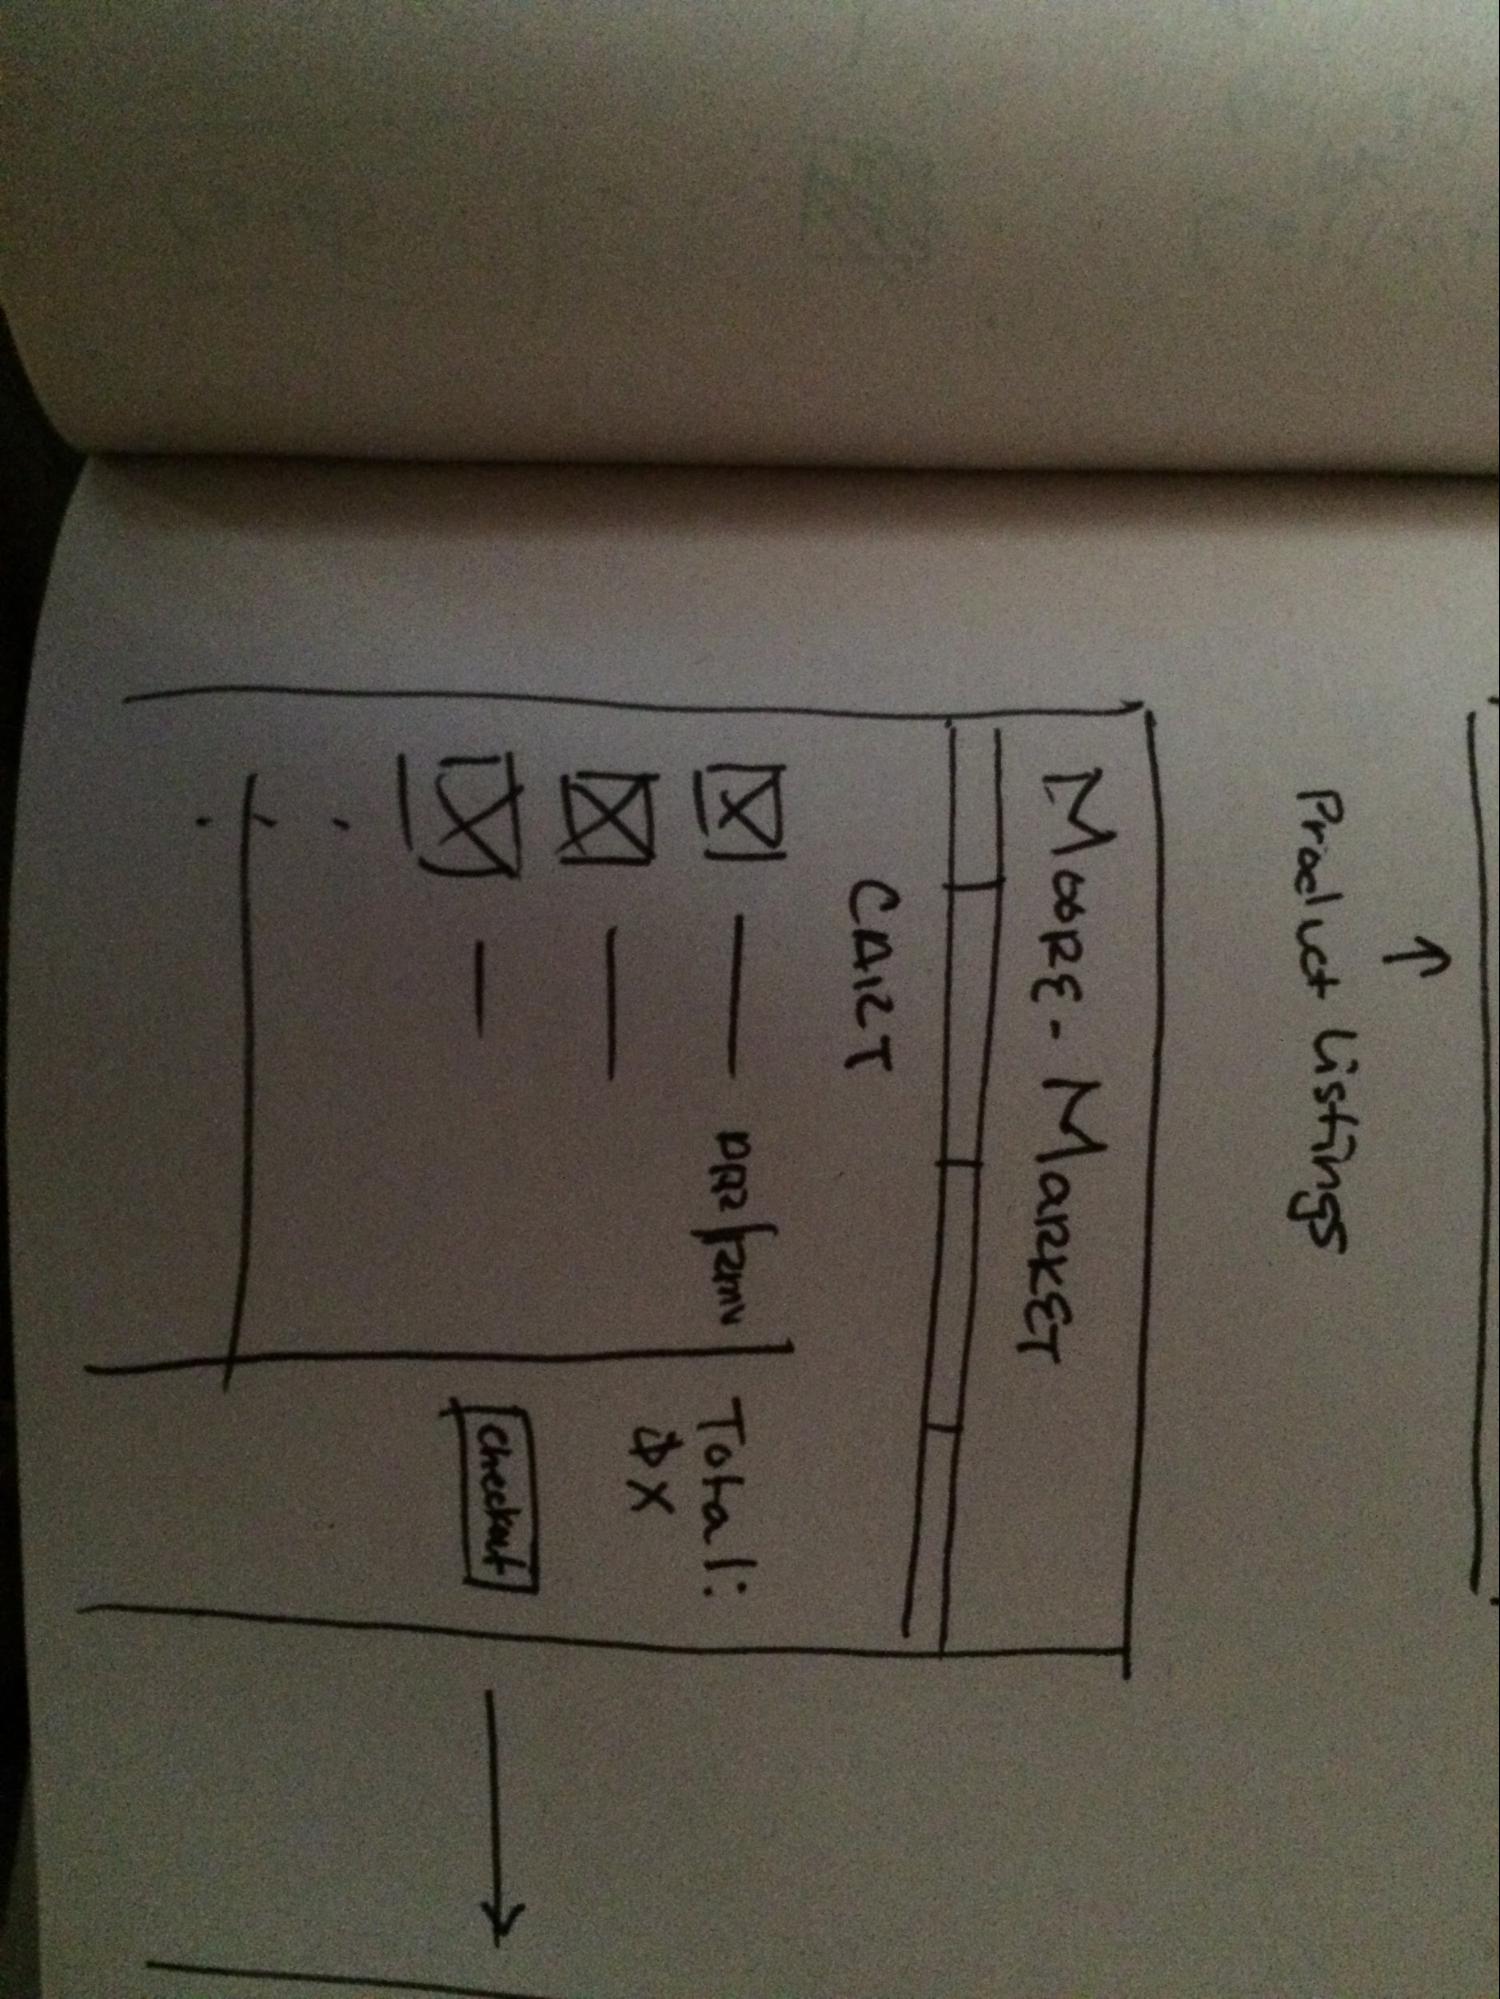 Product Listings
MooRE-MaRKET
CART
Total:
$X
Checkout